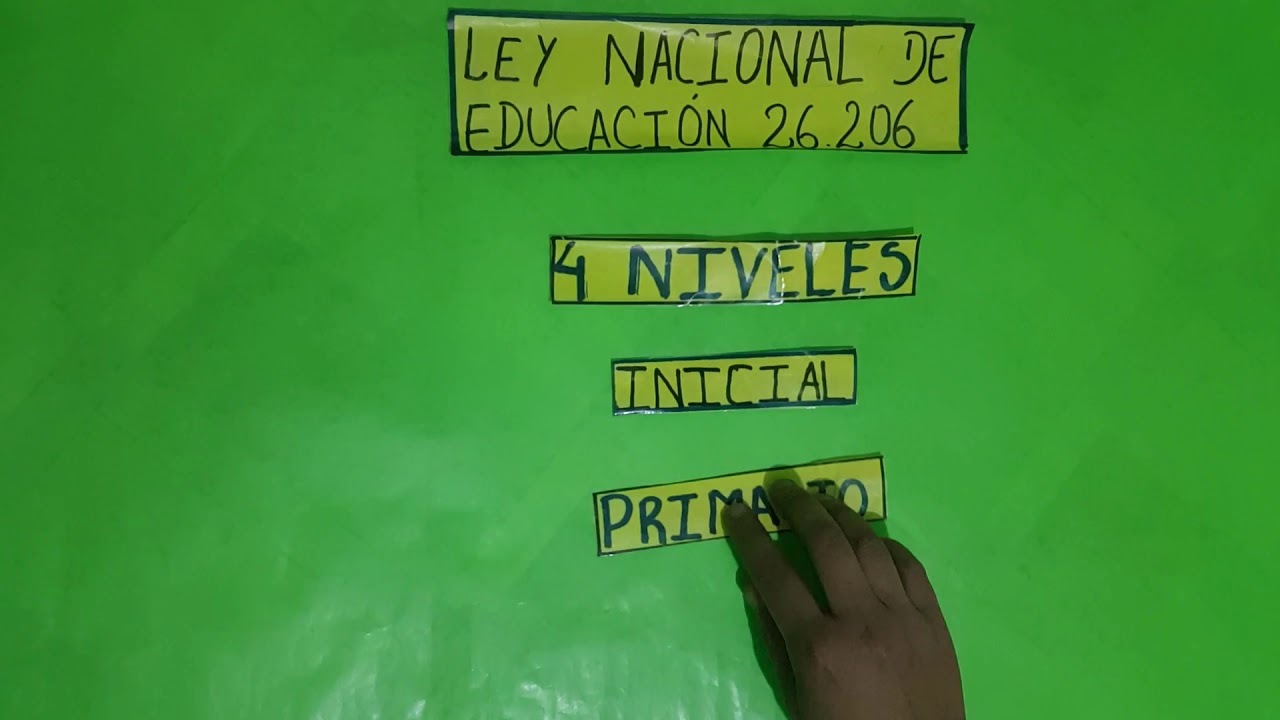 LEY NACIONAL DE
EDUCACIÓN 26.206
4 NIVELES
INICIAL
PRIMARIO